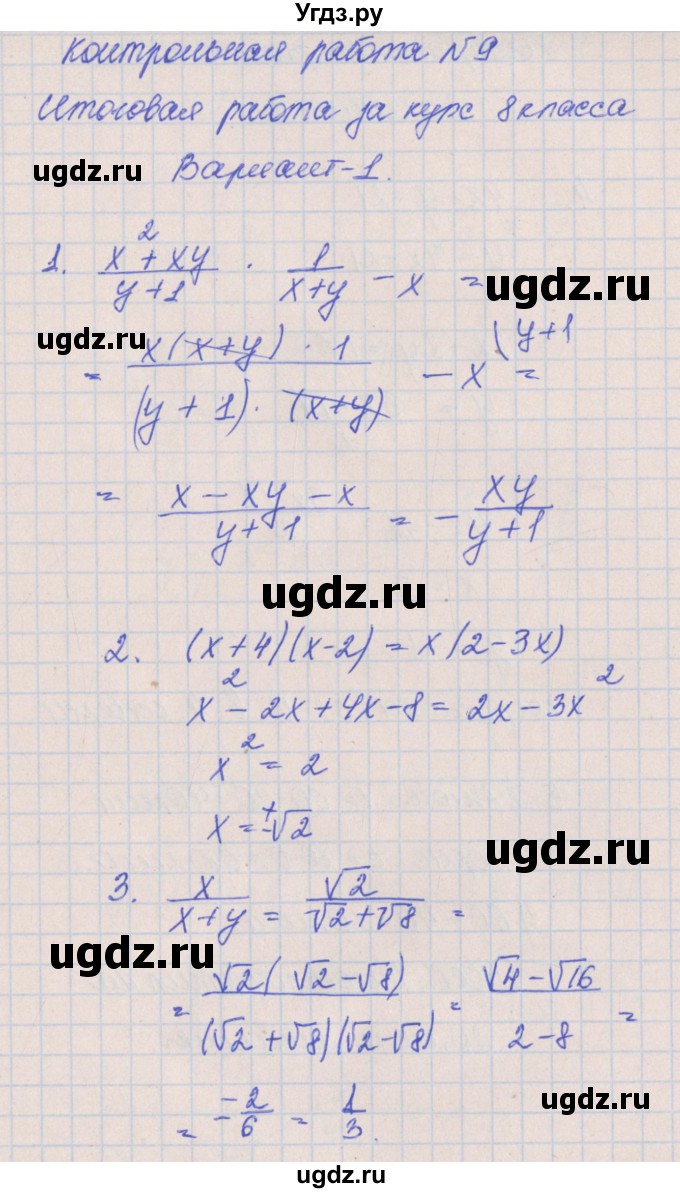 Угдз.ру
Контрольная работа №9
Итоговая работа за курс 8 класса
ugdz.ru
Вариант-1.
1. (x² + xy)/(y+1) · 1/(x+y) - x =
ugdz.ru
ugdz.ru
= (x(x+y) · 1)/((y+1) · (x+y)) - x (y+1 =
= (x - xy - x)/(y+1) = - xy/(y+1)
ugdz.ru
2. (x+4)(x-2) = x(2-3x)
x² - 2x + 4x - 8 = 2x - 3x²
x² = 2
x = ±√2
ugdz.ru
3. x/(x+y) = √2/(√2+√8) =
ugdz.ru
= (√2(√2-√8))/((√2+√8)(√2-√8)) = (√4-√16)/(2-8) =
ugdz.ru
= -2/-6 = 1/3.
ugdz.ru